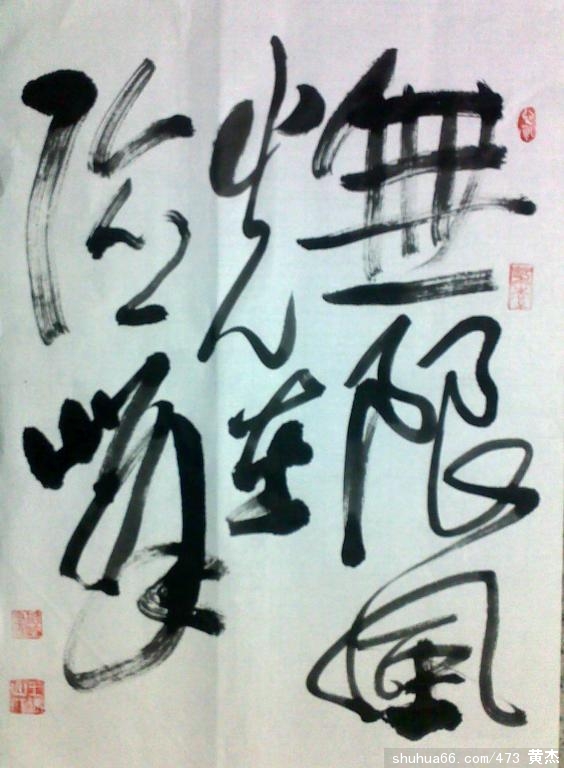 無限風
光在
險峰
shuhua66.com/473 黄杰